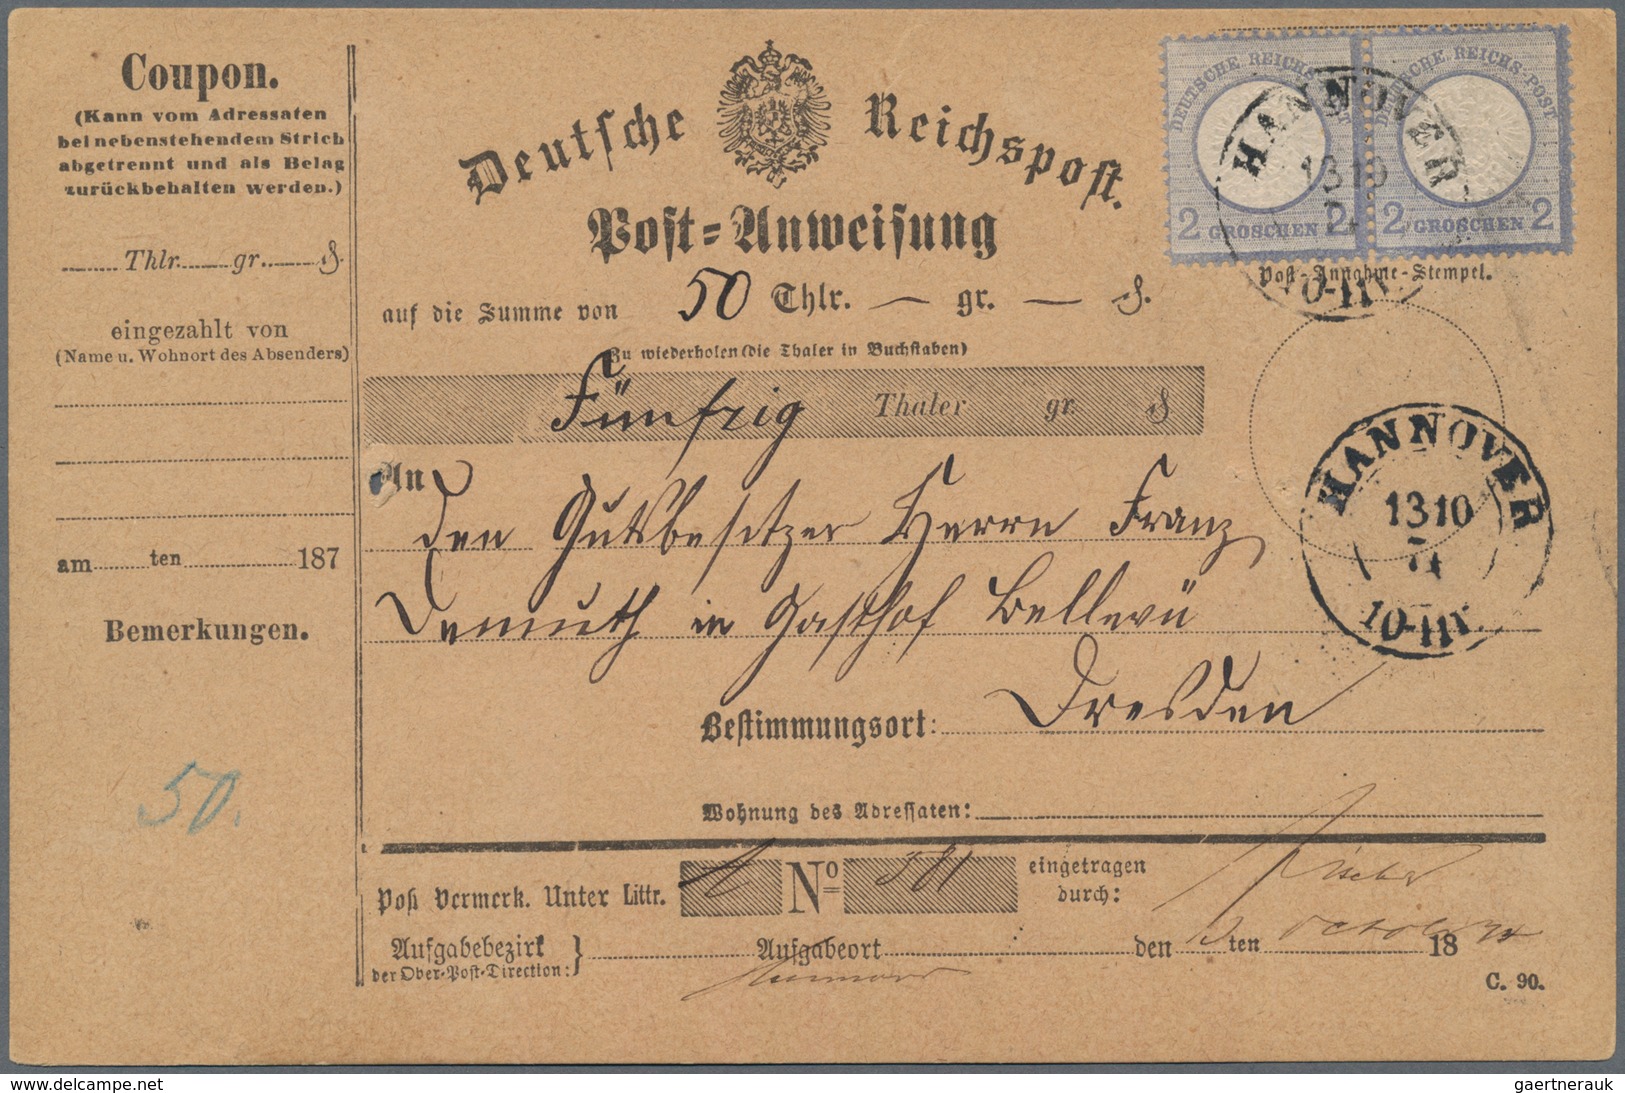 Coupon.
(Kann vom Adressaten
bei nebenstehendem Strich
abgetrennt und als Belag
zurückbehalten werden.)
Thlr. gr. ₰.
eingezahlt von
(Name u. Wohnort des Absenders)
am ten 187
Bemerkungen.
50.
Deutsche Reichspost.
Post-Anweisung
auf die Summe von 50 Thlr. — gr. — ₰.
Zu wiederholen (die Thaler in Buchstaben)
Fünfzig Thaler gr. ₰
An
den Gutsbesitzer Herrn Franz
Demuth in Gasthof Bellevü
Bestimmungsort: Dresden
Wohnung des Adressaten:
Post Vermerk. Unter Littr. No 581 eingetragen
durch:
Aufgabebezirk
der Ober-Post-Direction: } Aufgabeort den 13 ten October 1874
Hannover
C. 90.
DEUTSCHE REICHS-POST
2 GROSCHEN 2
DEUTSCHE REICHS-POST
2 GROSCHEN 2
HANNOVER
13 10
Post-Annahme-Stempel.
HANNOVER
13 10
74
delcampe.net
gaertnerauk